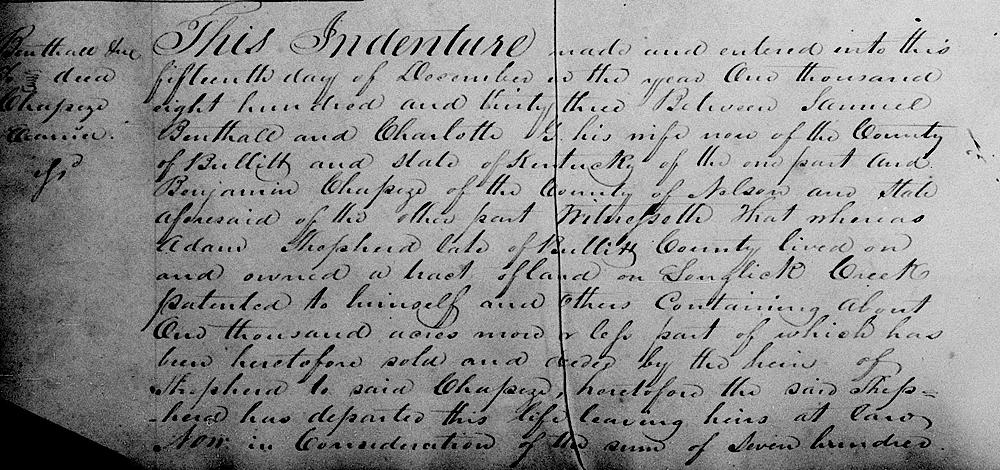 Benthall &c
deed
Chapeze
Exam.d
This Indenture made and entered into this
fifteenth day of December in the year One thousand
eight hundred and thirty three Between Samuel
Benthall and Charlotte G. his wife now of the County
of Bullitt and state of Kentucky of the one part And
Benjamin Chapeze of the County of Nelson and State
aforesaid of the other part Witnesseth That whereas
Adam Shepherd late of Bullitt County lived on
and owned a tract of land on Longlick Creek
patented to himself and others Containing About
One thousand acres more or less part of which has
been heretofore sold and deeded by the heirs of
Shepherd to said Chapeze, heretofore the said Shep=
=herd has departed this life leaving heirs at law
Now in Consideration of the sum of Seven hundred